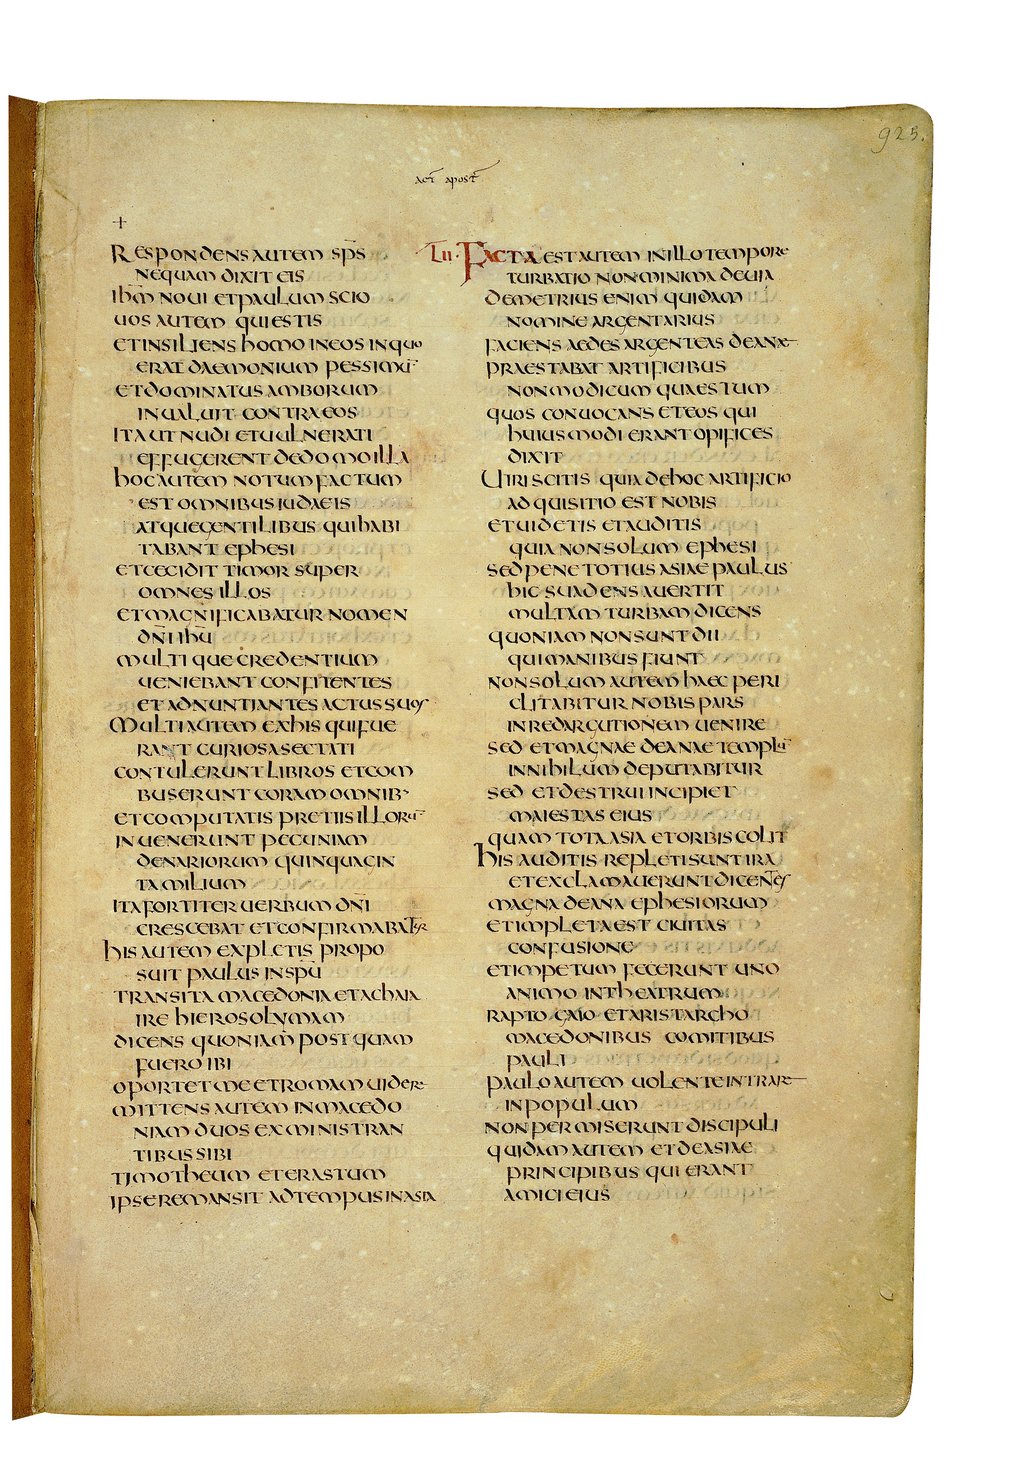 925.
act apost
+
Respondens autem sp̅s
nequam dixit eis
ih̅m noui et paulum scio
uos autem qui estis
et insiliens homo in eos in quo
erat daemonium pessimū
et dominatus amborum
inualuit contra eos
ita ut nudi et uulnerati
effugerent de domo illa
hoc autem notum factum
est omnibus iudaeis
atque gentilibus qui habi
tabant ephesi
et cecidit timor super
omnes illos
et magnificabatur nomen
dn̅i ih̅u
multique credentium
ueniebant confitentes
et adnuntiantes actus suos
Multi autem ex his qui fue
rant curiosa sectati
contulerunt libros et com
buserunt coram omnib·
et computatis pretiis illorū
inuenerunt pecuniam
denariorum quinquagin
ta milium
ita fortiter uerbum dn̅i
crescebat et confirmabatur
his autem expletis propo
suit paulus in sp̅u
transita macedonia et achaia
ire hierosolymam
dicens quoniam postquam
fuero ibi
oportet me et romam uidere
mittens autem in macedo
niam duos ex ministran
tibus sibi
timotheum et erastum
ipse remansit ad tempus in asia
LII· Facta est autem in illo tempore
turbatio non minima de uia
demetrius enim quidam
nomine argentarius
faciens aedes argenteas deanae
praestabat artificibus
non modicum quaestum
quos conuocans et eos qui
huiusmodi erant opifices
dixit
Uiri scitis quia de hoc artificio
adquisitio est nobis
et uidetis et auditis
quia non solum ephesi
sed pene totius asiae paulus
hic suadens auertit
multam turbam dicens
quoniam non sunt dii
qui manibus fiunt
non solum autem haec peri
clitabitur nobis pars
in redargutionem uenire
sed et magnae deanae templū
in nihilum deputabitur
sed et destrui incipiet
maiestas eius
quam tota asia et orbis colit
his auditis repleti sunt ira
et exclamauerunt dicentes
magna deana ephesiorum
et impleta est ciuitas
confusione
et impetum fecerunt uno
animo in theatrum
rapto gaio et aristarcho
macedonibus comitibus
pauli
paulo autem uolente intrare
in populum
non permiserunt discipuli
quidam autem et de asiae
principibus qui erant
amici eius